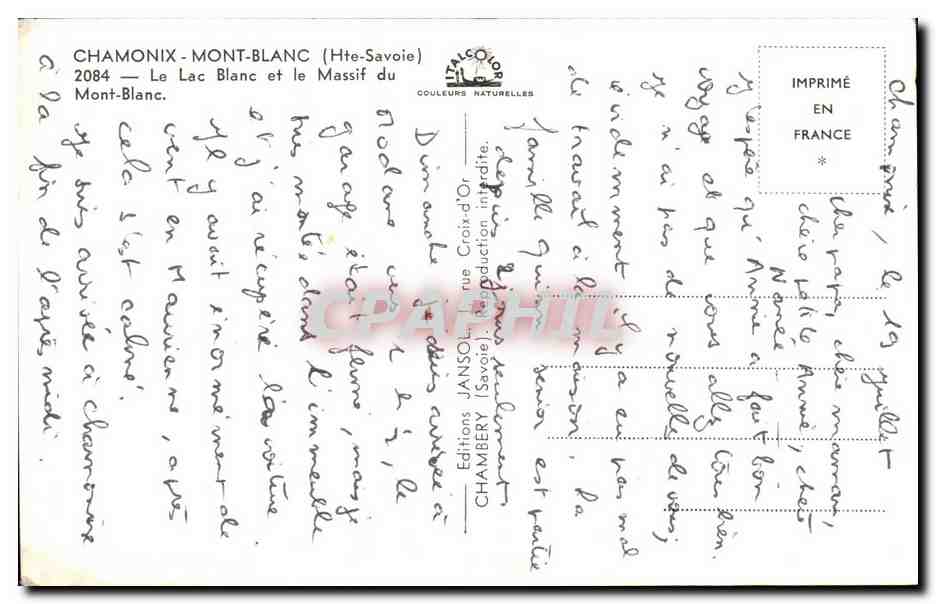 CHAMONIX - MONT-BLANC (Hte-Savoie)
2084 — Le Lac Blanc et le Massif du
Mont-Blanc.
ITALCOLOR
COULEURS NATURELLES
IMPRIMÉ
EN
FRANCE
*
Editions JANSOL, rue Croix-d'Or
CHAMBERY (Savoie). Reproduction interdite.
CPAPHIL
Chamonix, le 19 juillet
cher papa, chère maman,
chère petite Annie, chère
J'espère qu'Annie a fait bon
voyage et que vous allez tous bien.
Je n'ai pas de nouvelles de vous,
évidemment il y a eu pas mal
de travail à la maison. La
famille junior est partie
depuis seulement
Dimanche. Je suis arrivée à
Modane vers 1 h, le
garage était fermé, mais je
suis montée dans l'immeuble
et j'ai récupéré la voiture
Il y avait énormément de
vent en Maurienne, après
cela s'est calmé.
Je suis arrivée à Chamonix
à la fin de l'après midi.